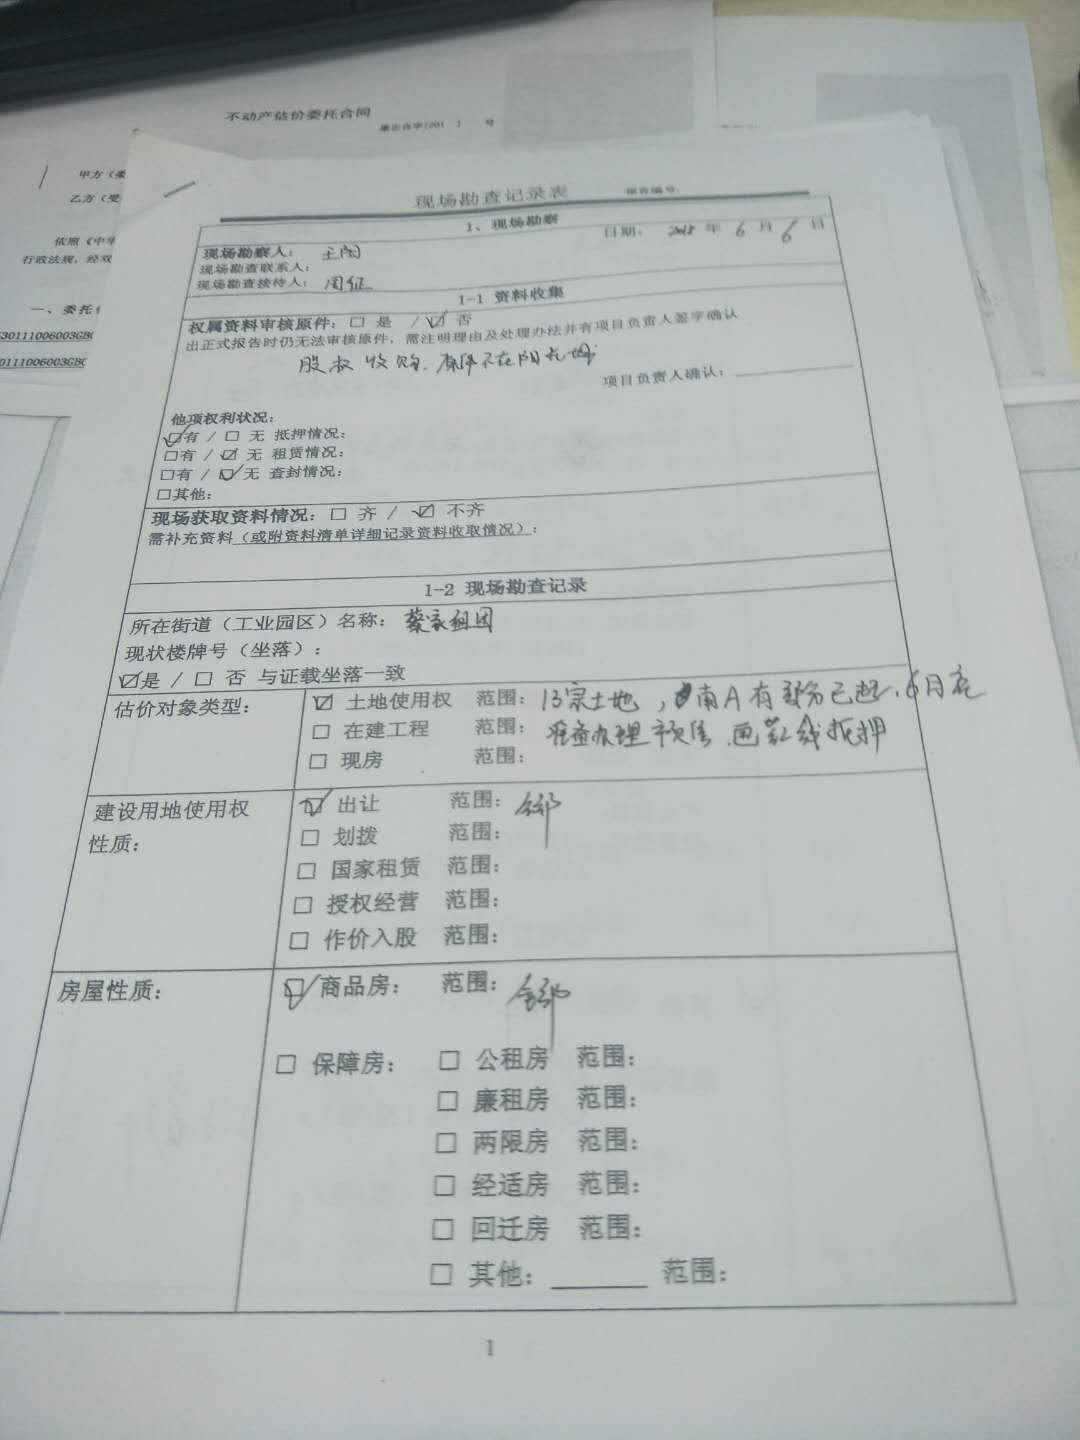 不动产估价委托合同
号
甲方（委
乙方（受
依照《中华
行政法规，经双
一、委托
530111006003GB0
0111006003GB0
现场勘查记录表 报告编号：
1、现场勘察
现场勘察人： 日期：2018 年 6 月 6 日
现场勘查联系人：
现场勘查接待人：周征
1-1 资料收集
权属资料审核原件：□ 是 / ☑ 否
出正式报告时仍无法审核原件，需注明理由及处理办法并有项目负责人签字确认
股权收购，原件不在阳光城
项目负责人确认：
他项权利状况：
☑有 / □ 无 抵押情况：
□有 / ☑ 无 租赁情况：
□有 / ☑ 无 查封情况：
□其他：
现场获取资料情况：□ 齐 / ☑ 不齐
需补充资料（或附资料清单详细记录资料收取情况）：
1-2 现场勘查记录
所在街道（工业园区）名称：蔡家组团
现状楼牌号（坐落）：
☑是 / □ 否 与证载坐落一致
估价对象类型： ☑ 土地使用权 范围：13宗土地，南A有部分已建，6月底
□ 在建工程 范围：准备办理预售，画红线抵押
□ 现房 范围：
建设用地使用权 ☑ 出让 范围：全部
性质： □ 划拨 范围：
□ 国家租赁 范围：
□ 授权经营 范围：
□ 作价入股 范围：
房屋性质： ☑ 商品房： 范围：全部
□ 保障房： □ 公租房 范围：
□ 廉租房 范围：
□ 两限房 范围：
□ 经适房 范围：
□ 回迁房 范围：
□ 其他：______ 范围：
1